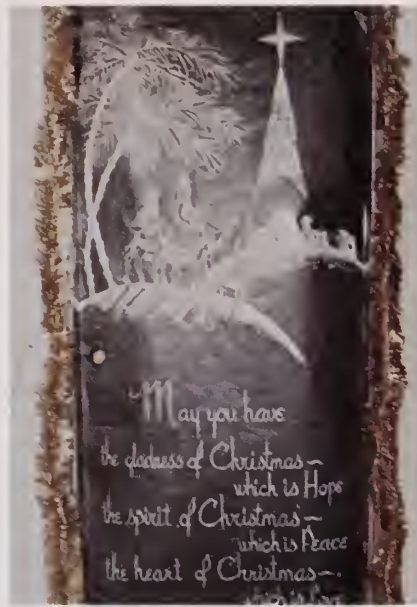 "May you have
the gladness of Christmas ~
which is Hope
the spirit of Christmas ~
which is Peace
the heart of Christmas ~
which is Love